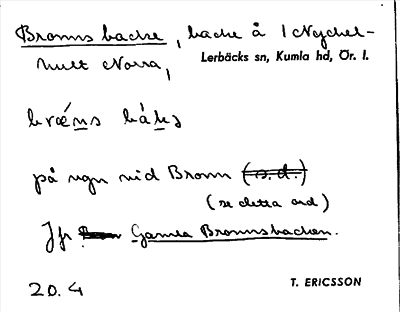 Bromsbacke, backe å 1 Nyckel-
hult Norra,
Lerbäcks sn, Kumla hd, Ör. l.
bræ̀ns bàks
på vgn vid Bromn (s.d.)
(se detta ord)
Jfr Gamla Bromsbacken.
20.4
T. ERICSSON